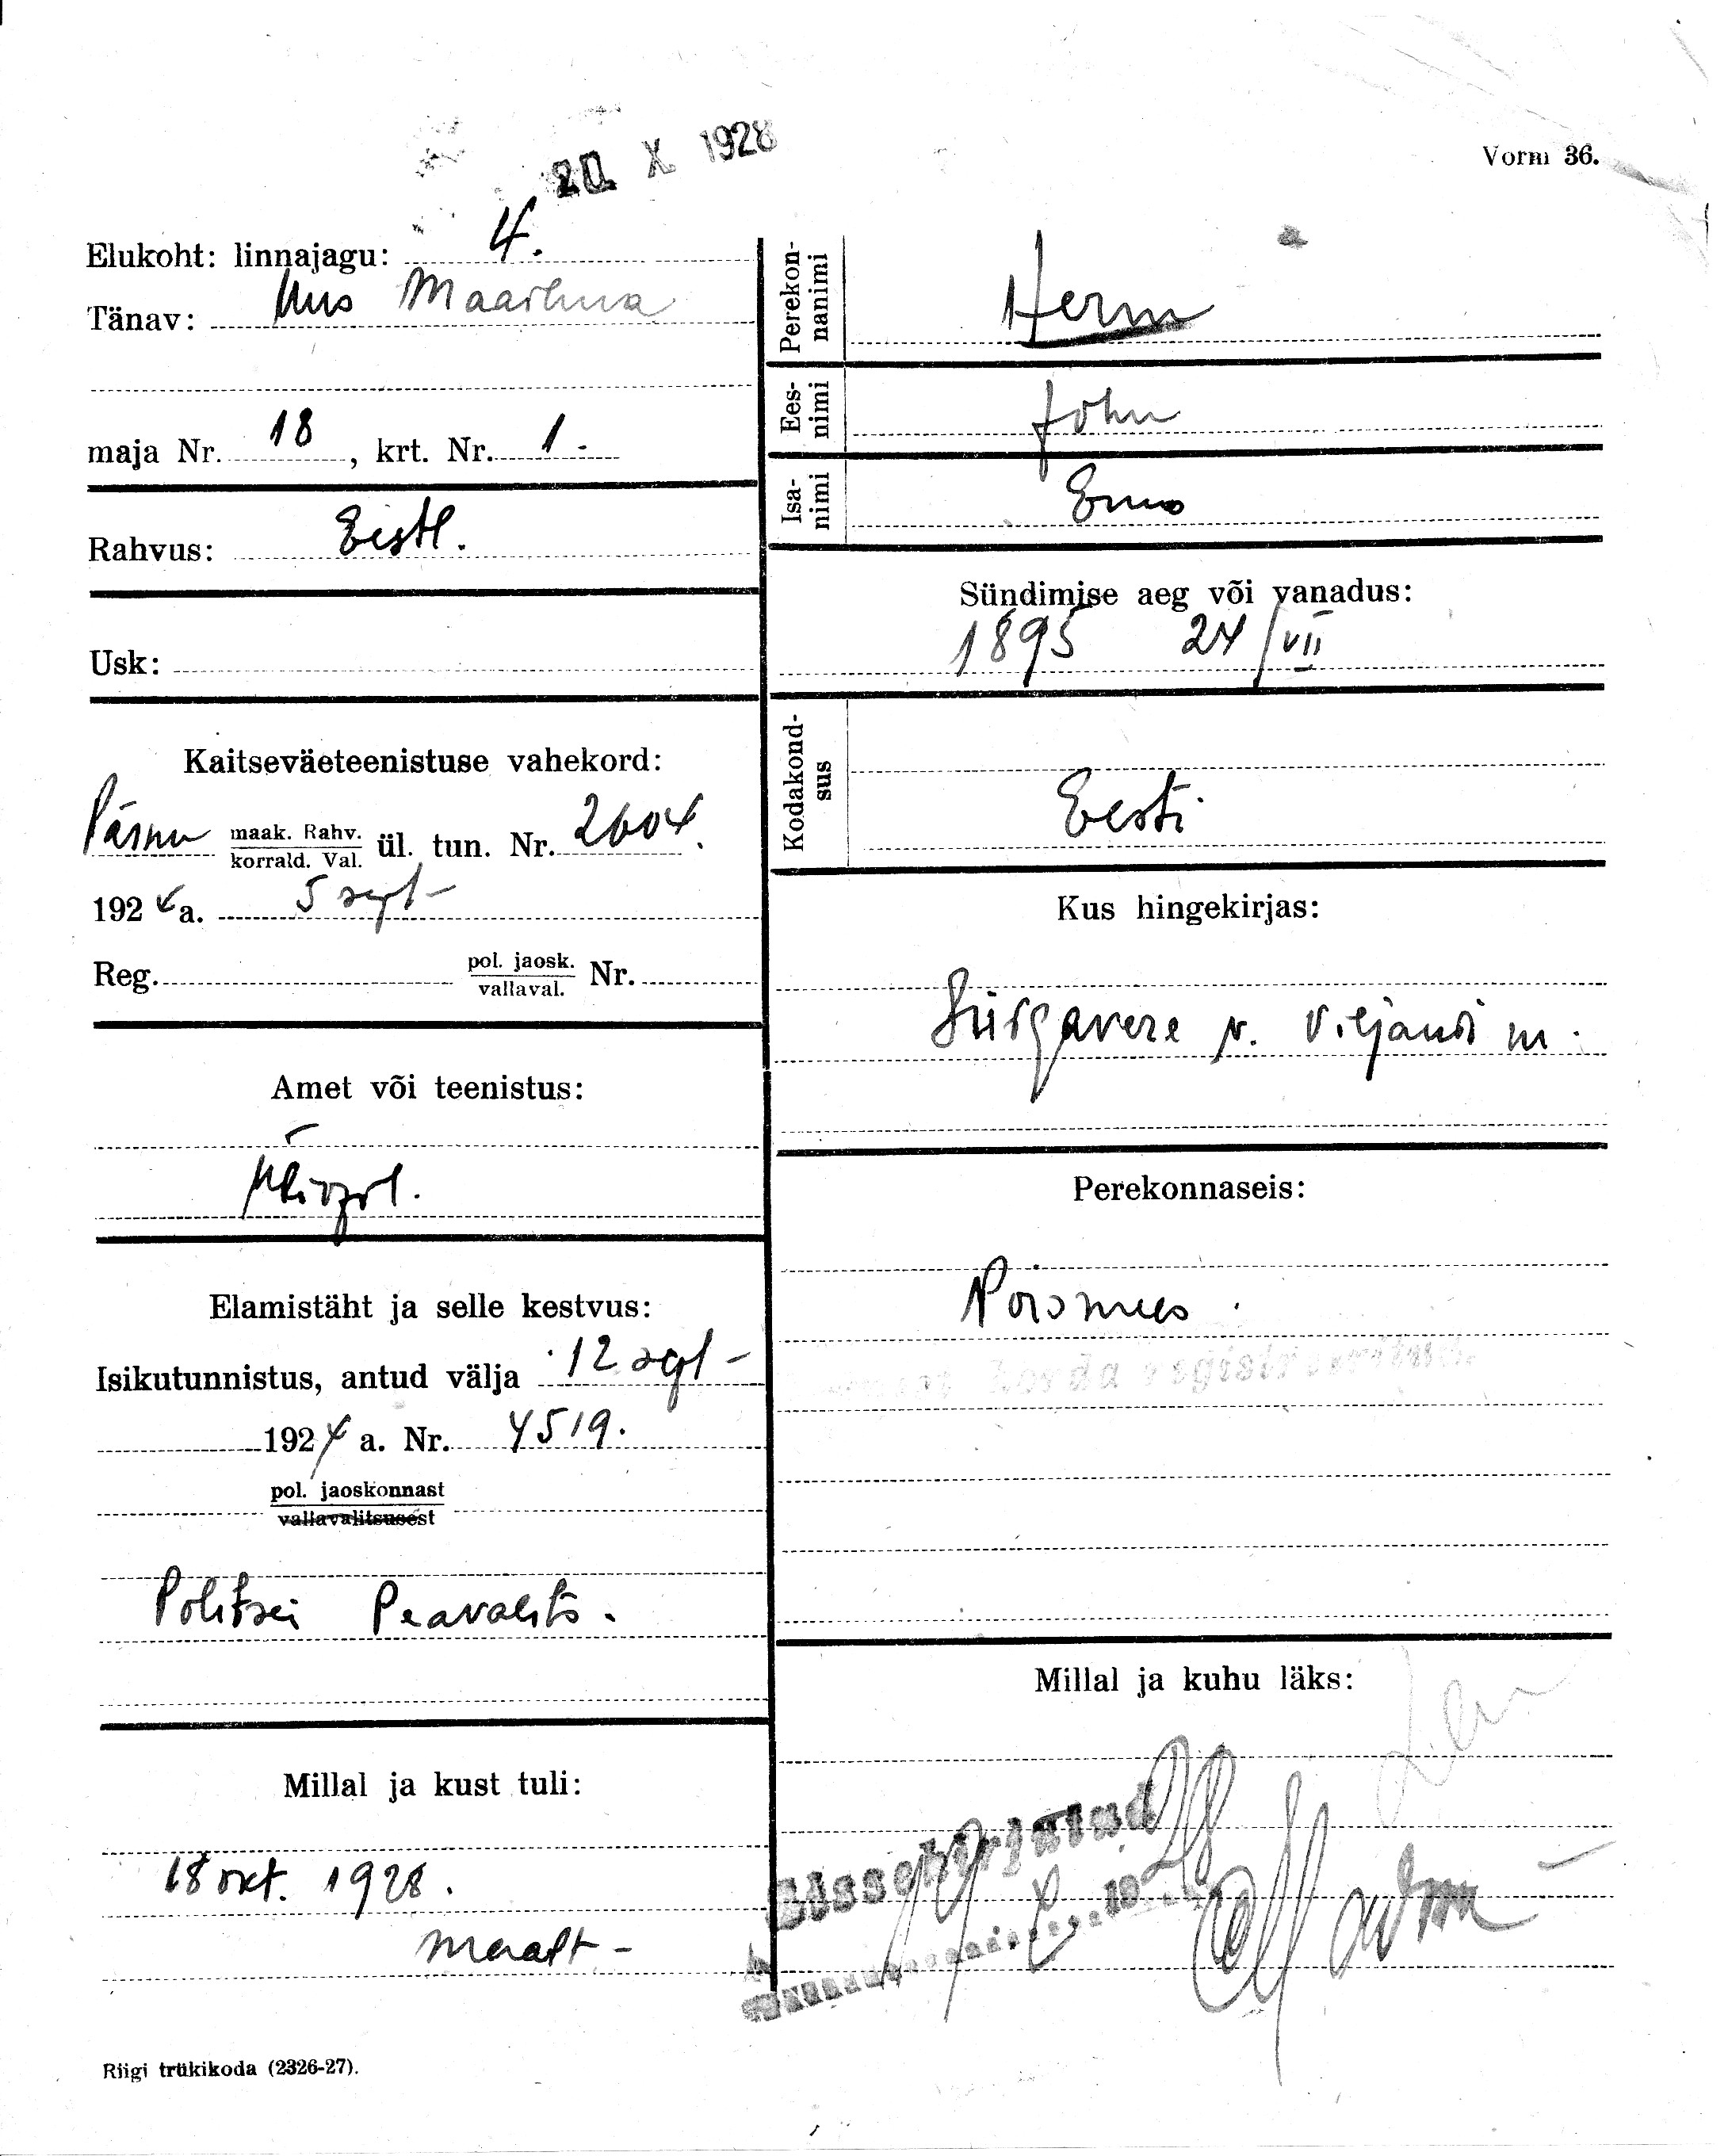 20 X 1928
Vorm 36.
Elukoht: linnajagu: 4.
Tänav: Uus Maarlima
maja Nr. 18, krt. Nr. 1.
Rahvus: Eestl.
Usk:
Kaitseväeteenistuse vahekord:
Pärnu maak. Rahv. korrald. Val. ül. tun. Nr. 2604.
1924 a. 5 sept
Reg. pol. jaosk. vallaval. Nr.
Amet või teenistus:
Üliõpl.
Elamistäht ja selle kestvus:
Isikutunnistus, antud välja 12 sept
1924 a. Nr. 4519.
pol. jaoskonnast
vallavalitsusest
Politsei Peavalits.
Millal ja kust tuli:
18 okt. 1928.
maalt
Riigi trükikoda (2326-27).
Perekonnanimi Herm
Eesnimi John
Isanimi Enno
Sündimise aeg või vanadus:
1895 24/VII
Kodakondsus Eesti
Kus hingekirjas:
Sürgavere v. Viljandi m.
Perekonnaseis:
Poismees.
korda registreeritud.
Millal ja kuhu läks:
Sissekirjutud
X 1928